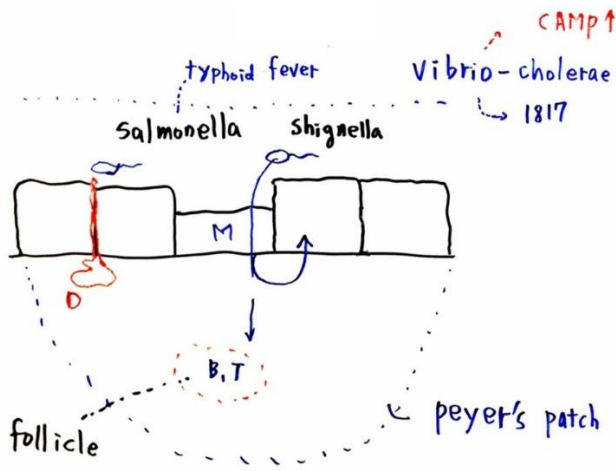 CAMP↑
typhoid fever
Vibrio-cholerae
1817
Salmonella
Shignella
M
D
B, T
follicle
peyer's patch